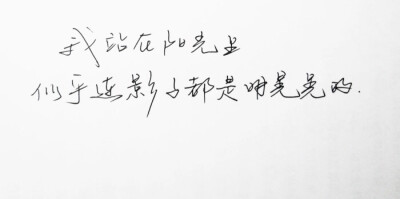 我站在阳光里
似乎连影子都是明晃晃的.